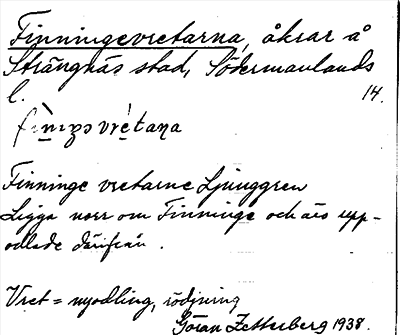 Finningevretarna, åkrar å
Strängnäs stad, Södermanlands
l. 14.
vrètaṇa
Finninge vretarne Ljunggren
Ligga norr om Finninge och äro upp-
odlade därifrån.
Vret = nyodling, rödjning
Göran Zetterberg 1938.